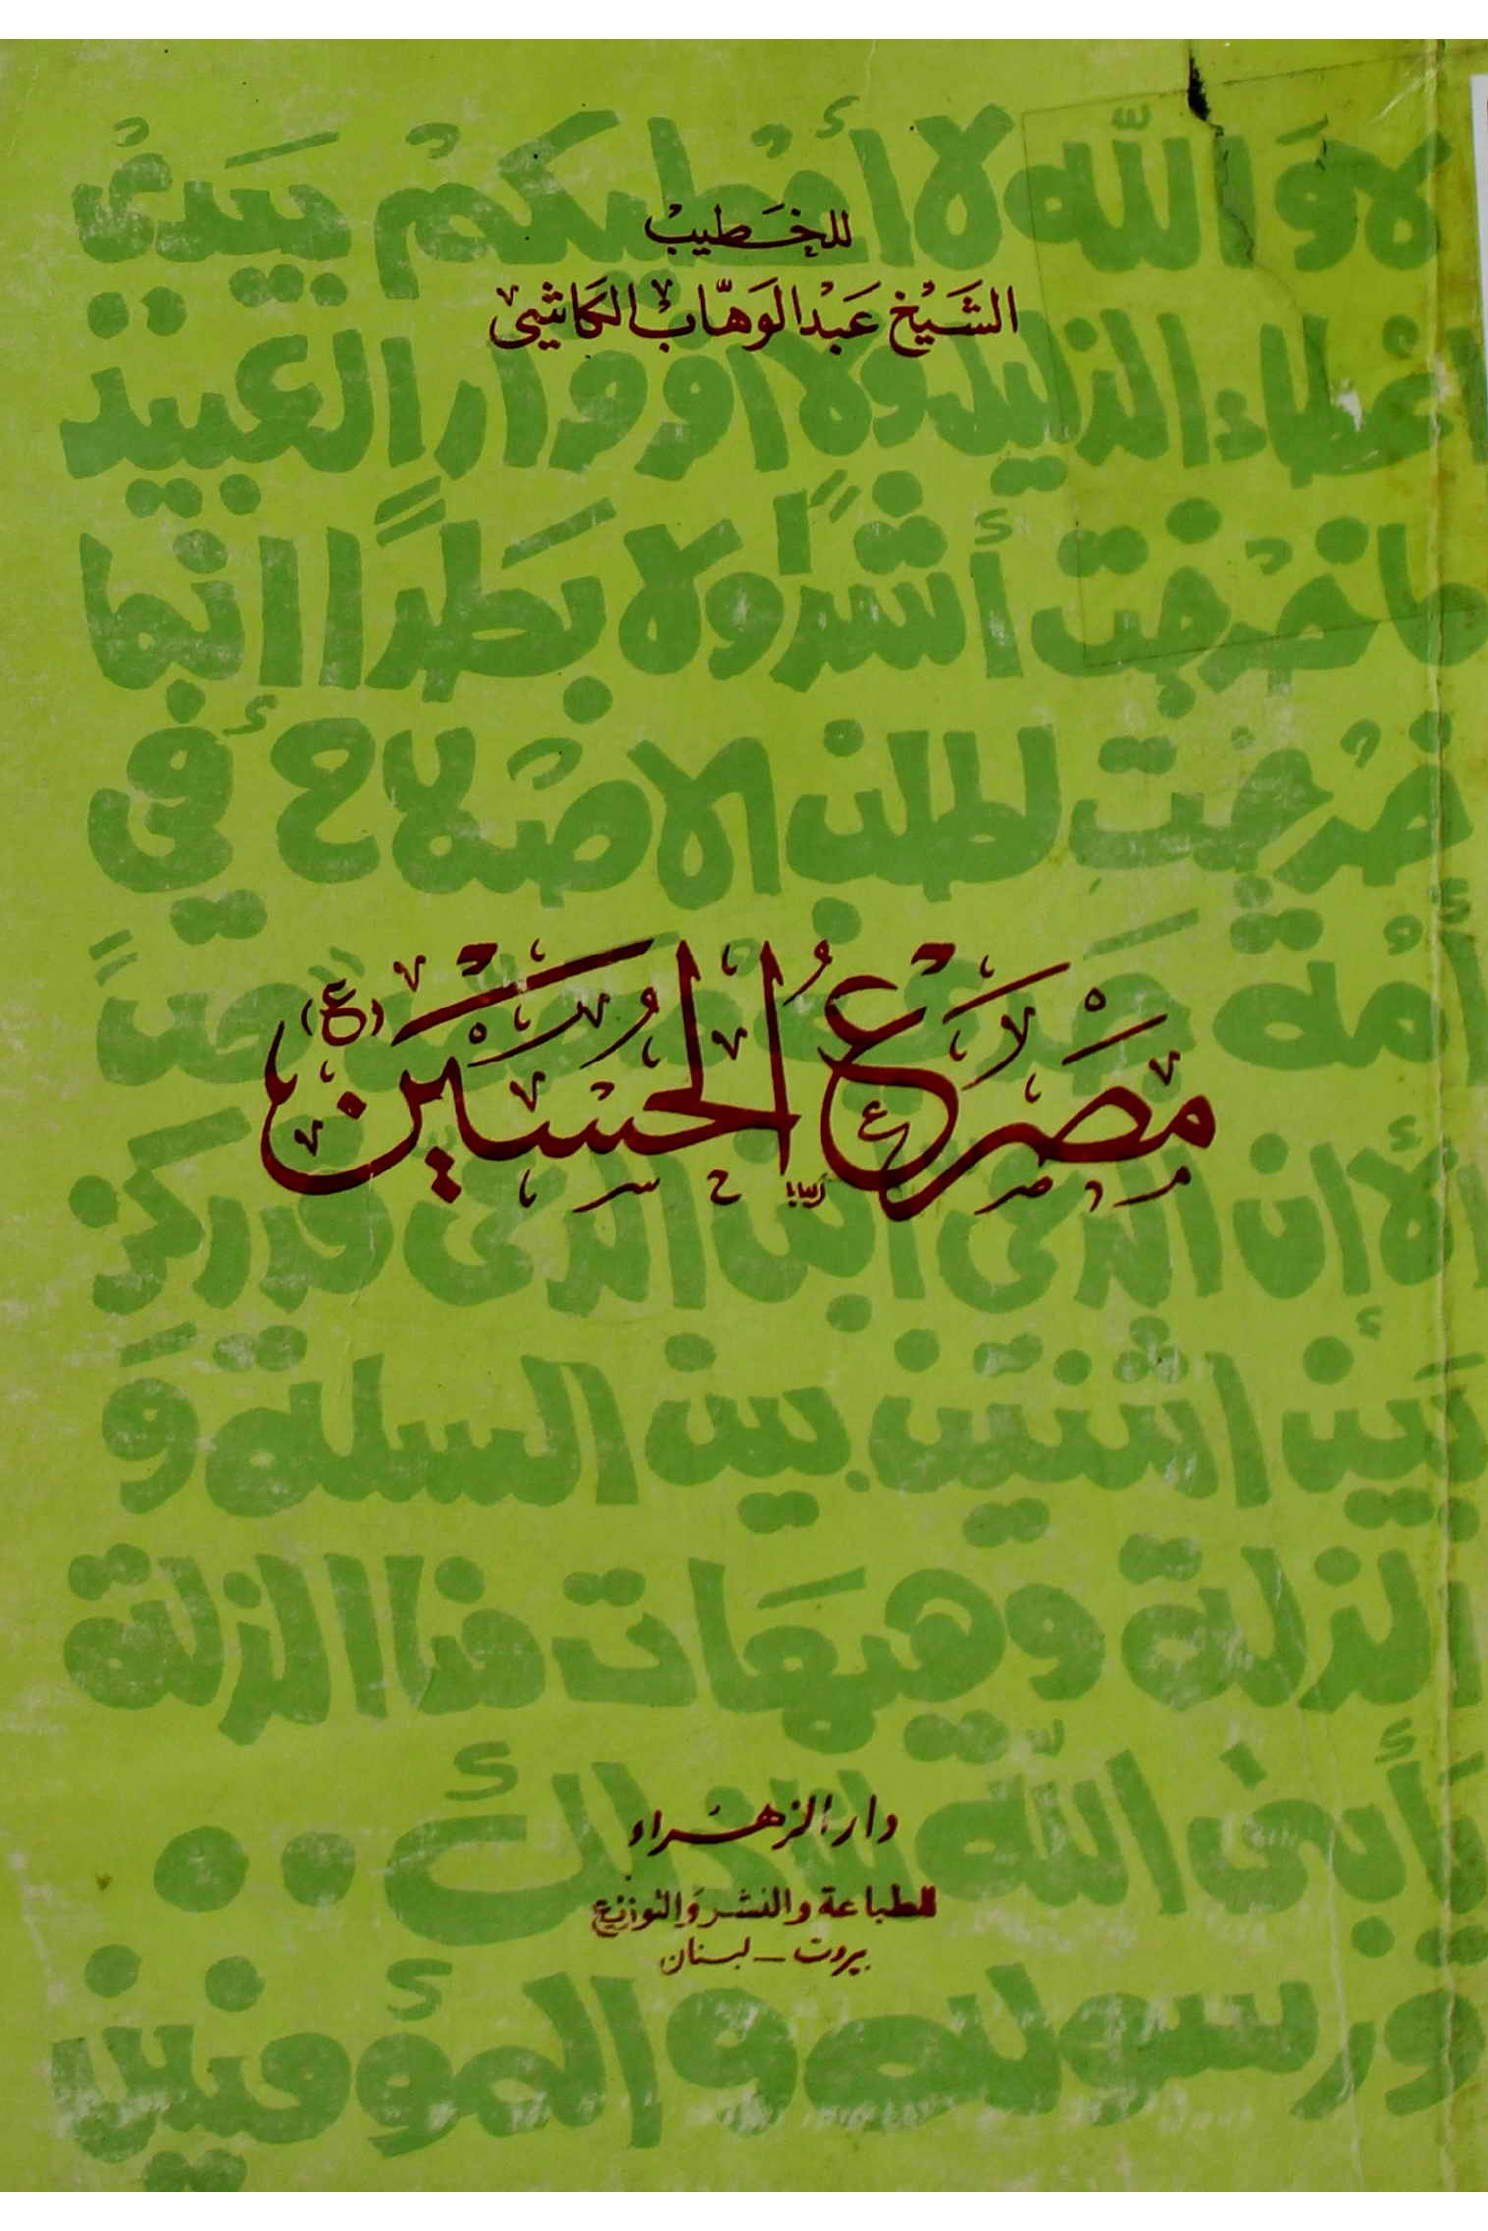 للخطيب
الشيخ عبد الوهاب الكاشي
لا والله لا أعطيكم بيدي
اعطاء الذليل ولا أو وار العبيد
ما خرجت أشرًا ولا بطرًا انما
خرجت لطلب الاصلاح في
أمة جدي
مصرع الحسين (ع)
ألا إن الدعي ابن الدعي قد ركز
بين اثنتين بين السلة و
الذلة وهيهات منا الذلة
يأبى الله لنا ذلك ..
دار الزهراء
للطباعة والنشر والتوزيع
بيروت - لبنان
ورسوله والمؤمنين